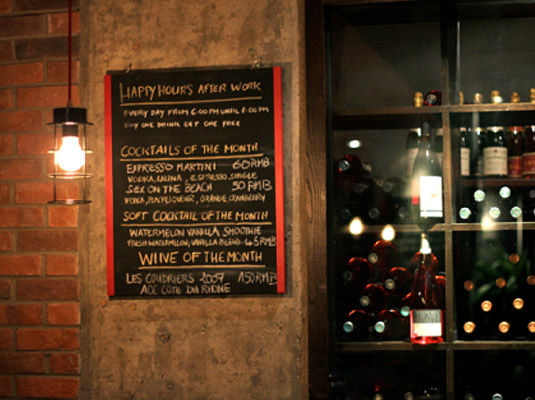 HAPPY HOURS AFTER WORK
EVERY DAY FROM 6:00 PM UNTIL 8:00 PM
BUY ONE DRINK GET ONE FREE
COCKTAILS OF THE MONTH
ESPRESSO MARTINI 60 RMB
VODKA, KALHUA, ESPRESSO, SINGLE
SEX ON THE BEACH 50 RMB
VODKA, ORANGE, CRANBERRY
SOFT COCKTAIL OF THE MONTH
WATERMELON VANILLA SMOOTHIE
FRESH WATERMELON, VANILLA BLEND 45 RMB
WINE OF THE MONTH
LES COUDRIERS 2007 150 RMB
AOC COTE DU RHONE